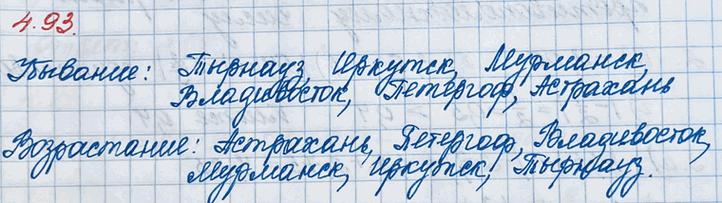 4.93.
Убывание: Тырнауз, Иркутск, Мурманск,
Владивосток, Петергоф, Астрахань
Возрастание: Астрахань, Петергоф, Владивосток,
Мурманск, Иркутск, Тырныауз.